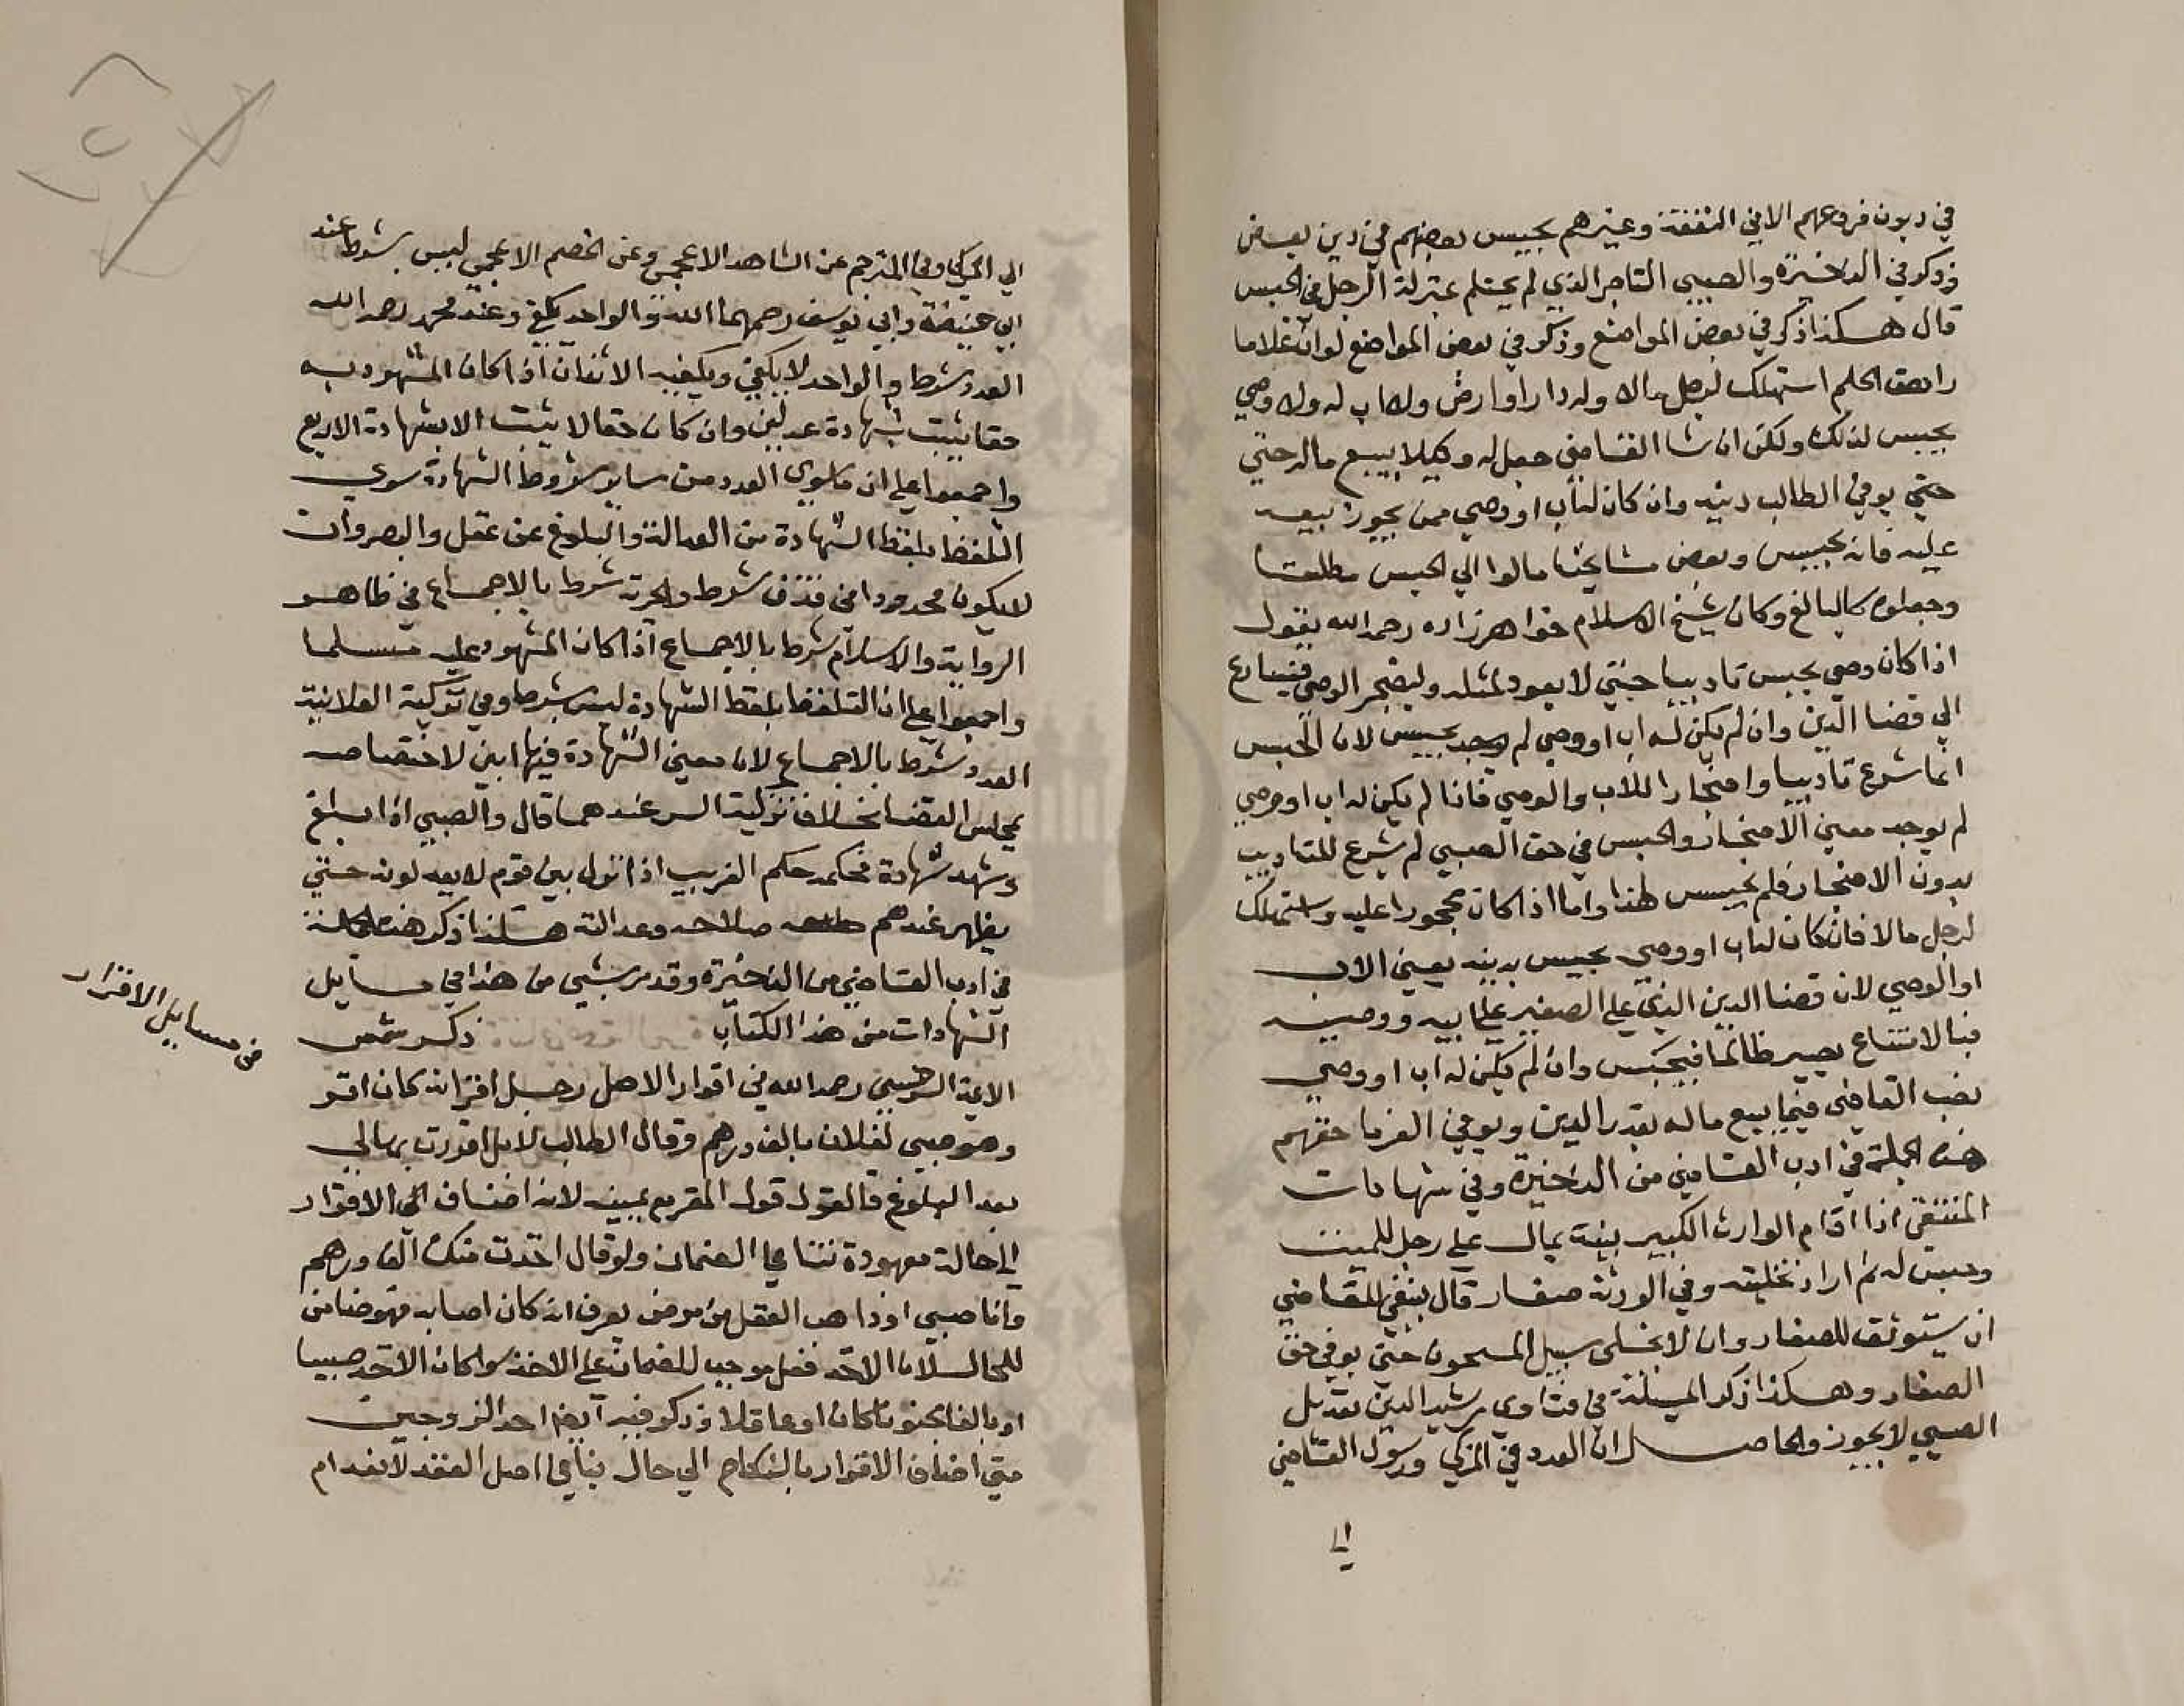 في ديون فروعهم الا في النفقة وغيرهم يحبس بعضهم في دين بعض
وذكر في الذخيرة والصبي التاجر الذي لم يحتلم بمنزلة الرجل في الحبس
قال هكذا ذكر في بعض المواضع وذكر في بعض المواضع لو ان غلاما
راهق الحلم استهلك لرجل مالا وله دار او ارض ولا اب له ولا وصي
يحبس لذلك ولكن ان شا القاضي جعل له وكيلا يبيع ماله حتي
حتي يوفي الطالب دينه وان كان له اب او وصي ممن يجوز بيعه
عليه فانه يحبس وبعض مشايخنا مالوا الي الحبس مطلقا
وجعلوه كالبالغ وكان شيخ الاسلام خواهرزاده رحمه الله يقول
اذا كان وصي يحبس تاديبا حتي لا يعود لمثله وليضجر الوصي فيسارع
الي قضا الدين وان لم يكن له اب او وصي لم يحبس لان الحبس
انما شرع تاديبا واضجارا للاب والوصي فاذا لم يكن له اب او وصي
لم يوجد معني الاضجار والحبس في حق الصبي لم يشرع للتاديب
بدون الاضجار فلم يحبس لهذا واما اذا كان محجورا عليه واستهلك
لرجل مالا فان كان له اب او وصي يحبس بدينه يعني الاب
او الوصي لان قضا الدين الذي علي الصغير علي ابيه ووصيه
فبالامتناع يصير ظالما فيحبس وان لم يكن له اب او وصي
نصب القاضي قيما يبيع ماله بقدر الدين ويوفي الغرما حقهم
هذه الجملة في ادب القاضي من الذخيرة وفي شهادات
المنتقي اذا اقام الوارث الكبير بينة بمال علي رجل للميت
وحبس له ثم اراد تخليته وفي الورثة صغار قال ينبغي للقاضي
ان يستوثق للصغار وان لا يخلي سبيل المسجون حتي يوفي حق
الصغار وهكذا ذكر المسئلة في فتاوي رشيد الدين تعديل
الصبي لا يجوز والحاصل ان العدد في المزكي ورسول القاضي
الي
الي المزكي وفي المترجم عن الشاهد الاعجمي وعن الخصم الاعجمي ليس بشرط عند
ابي حنيفة وابي يوسف رحمهما الله والواحد يكفي وعند محمد رحمه الله
العدد شرط والواحد لا يكفي ويكفيه الاثنان اذا كان المشهود به
حقا يثبت بشهادة عدلين وان كان حقا لا يثبت الا بشهادة الاربع
واجمعوا علي ان ما سوي العدد من ساير شروط الشهادة سوي
التلفظ بلفظ الشهادة من العدالة والبلوغ عن عقل والبصر وان
لا يكون محدودا في قذف شرط والحرية شرط بالاجماع في ظاهر
الرواية والاسلام شرط بالاجماع اذا كان المشهود عليه مسلما
واجمعوا علي ان التلفظ بلفظ الشهادة ليس بشرط وفي تزكية العلانية
العدد شرط بالاجماع لان معني الشهادة فيها ابين لاختصاصه
بمجلس القضا بخلاف تزكية السر عندهما قال والصبي اذا بلغ
وشهد شهادة فحكمه حكم الغريب اذا نزل بين قوم لا يعدلونه حتي
يظهر عندهم صلاحه وعدالته هكذا ذكر هذه الجملة
في ادب القاضي من الذخيرة وقد مر شي من هذا في مسايل
الشهادات من هذا الكتاب ذكر شمس
الايمة السرخسي رحمه الله في اقرار الاصل رجل اقر انه كان اقر
وهو صبي لفلان بالف درهم وقال الطالب لا بل اقررت بها لي
بعد البلوغ فالقول قول المقر مع يمينه لانه اضاف الي الاقرار
الي حالة معهودة تنافي الضمان ولو قال اخذت منك الف درهم
وانا صبي او ذاهب العقل من مرض يعرف انه كان اصابه فهو ضامن
للمال لان الاخذ فعل موجب للضمان علي الاخذ سوا كان الاخذ صبيا
او بالغا مجنونا كان او عاقلا وذكر فيه ايضا احد الزوجين
متي اضاف الاقرار بالنكاح الي حال ينافي اصل العقد لانعدام
من مسايل الاقرار